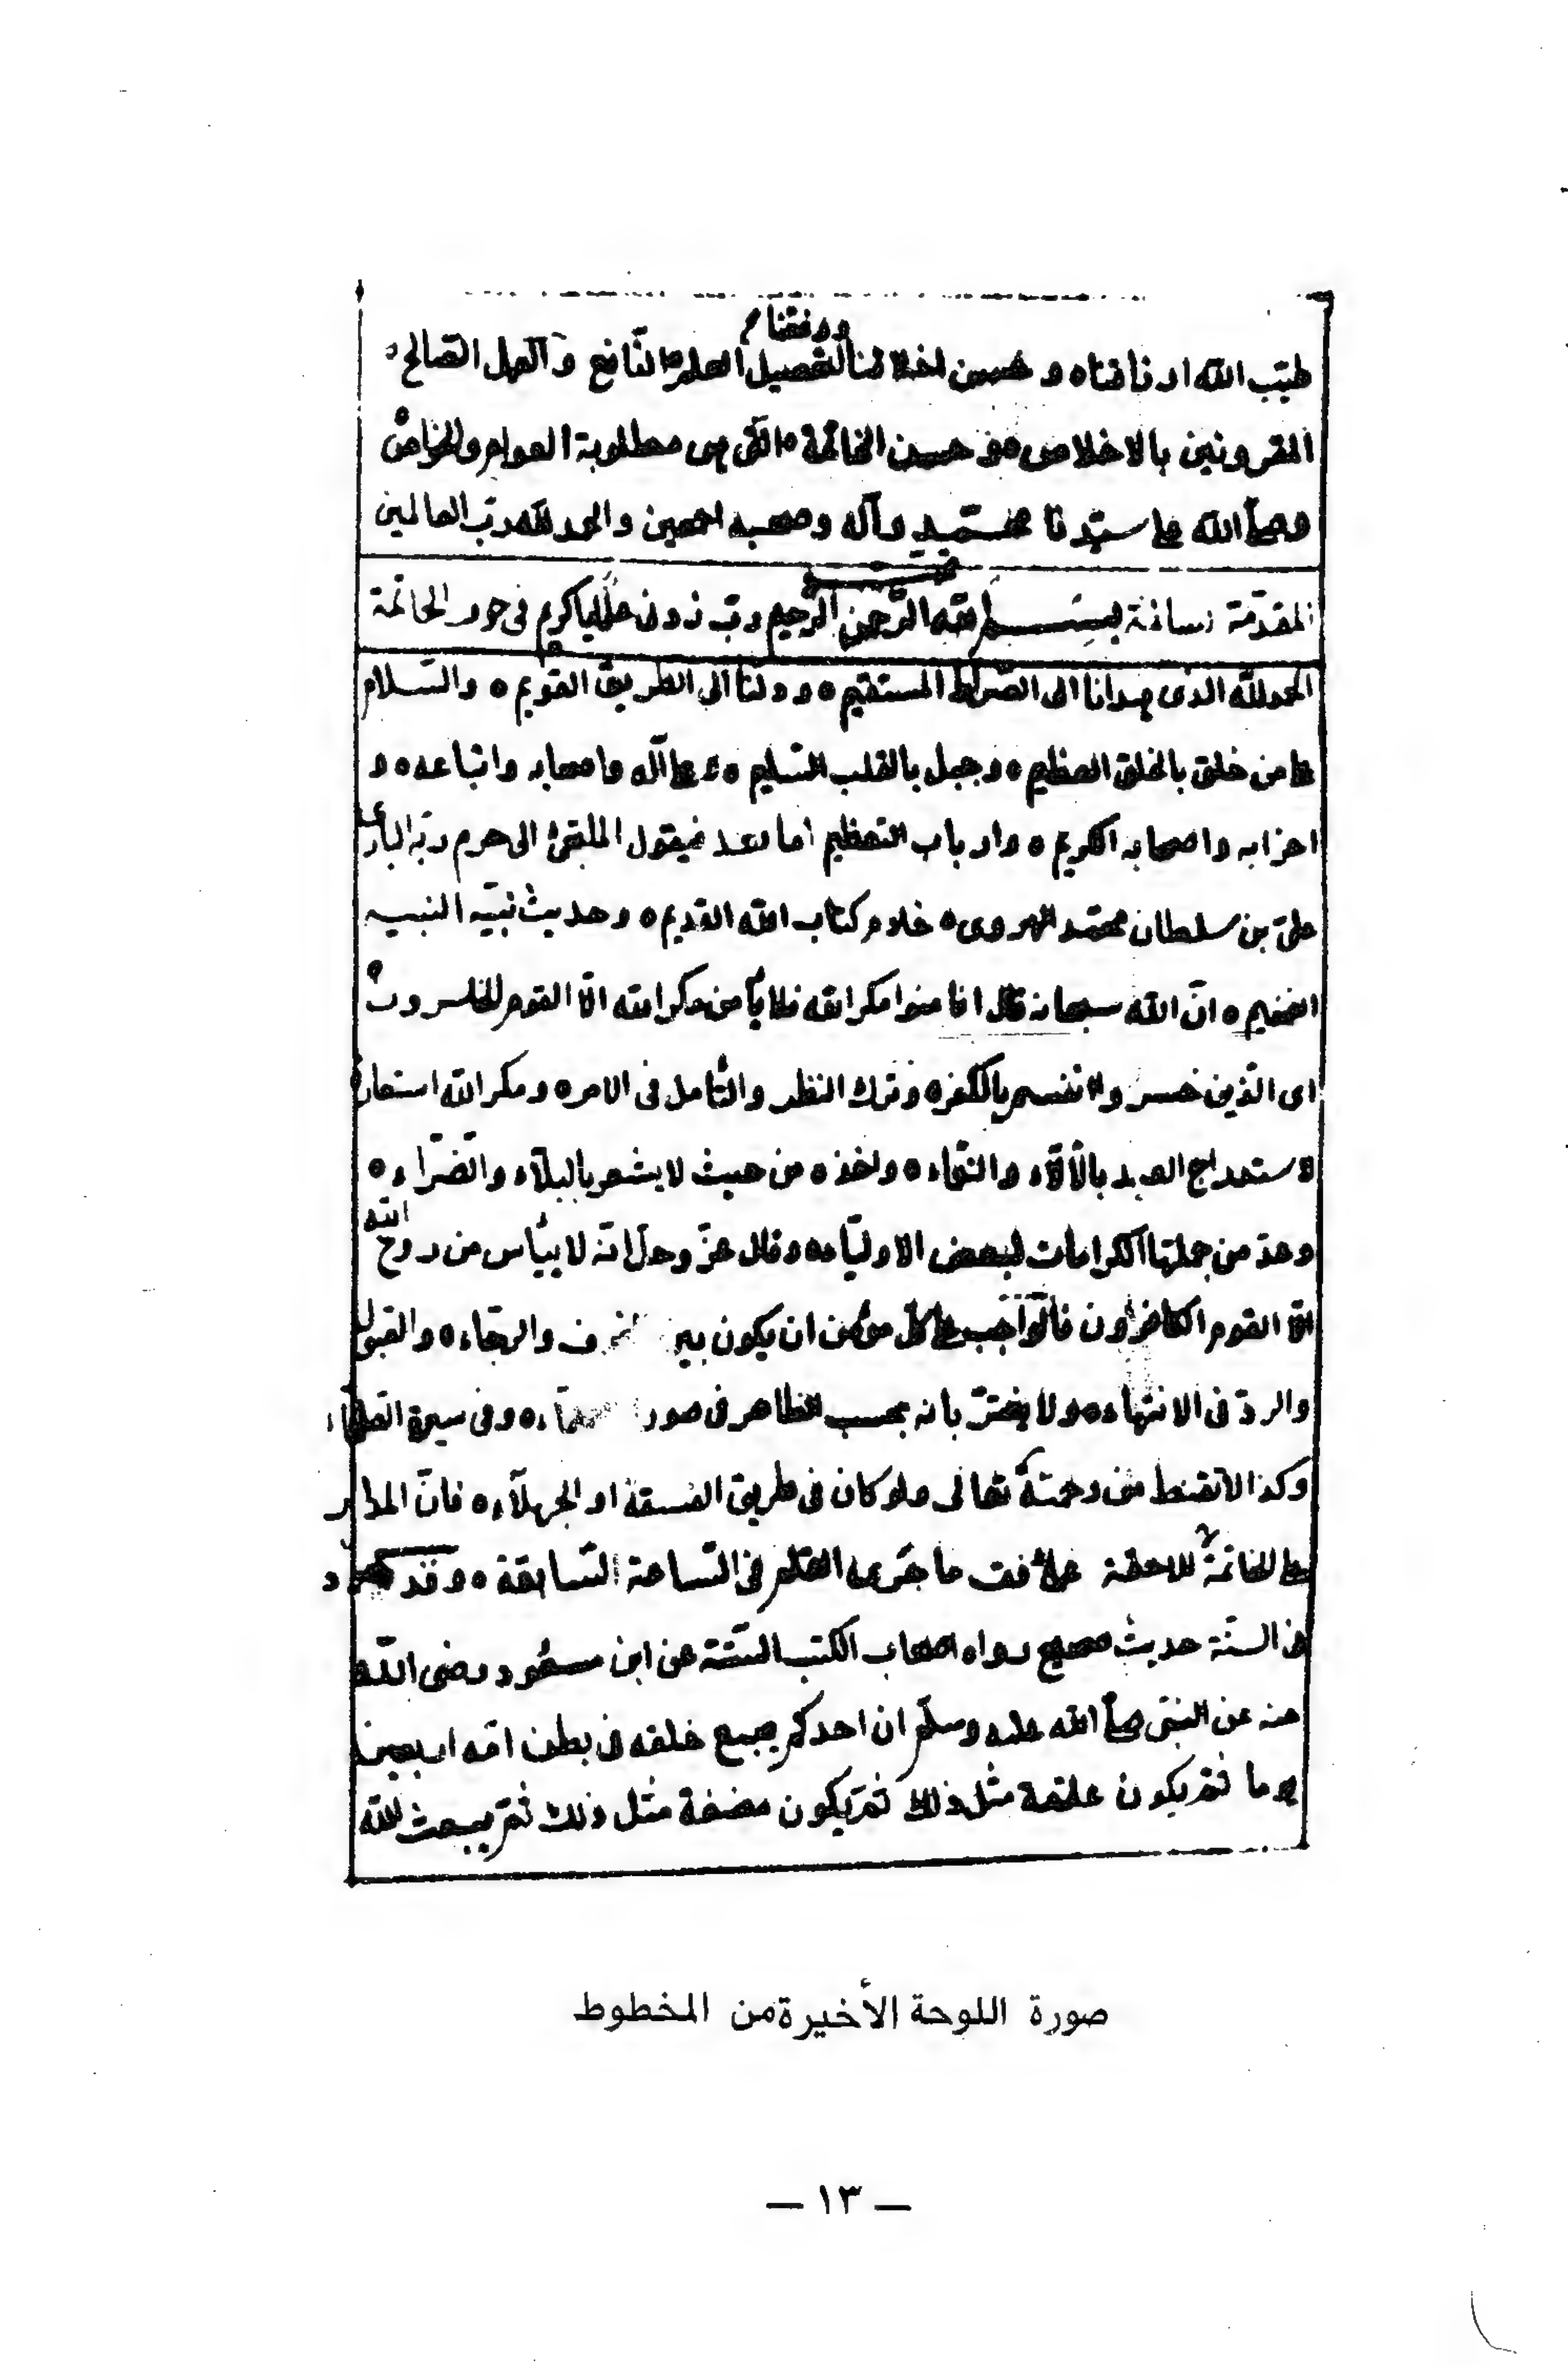 ووفقنا
طيّب الله ارزاقنا ه و حسن اخلاقنا لتحصيل العلم النّافع والعمل الصّالح
المقرونين بالاخلاص حسن الخاتمة التى هى مطلوبة العوام والخواصّ
وصلّى الله على سيّدنا محمّد وآله وصحبه اجمعين والحمد لله ربّ العالمين
المقدّمة بسم الله الرّحمن الرّحيم ربّ زدنى علما يا كريم فى خوف الخاتمة
الحمد لله الذى هدانا الى الصّراط المستقيم ه ودلنا الى الطريق القويم ه والسّلام
على من خلق بالخلق العظيم ه وجبل بالقلب السّليم ه وعلى آله واصحابه واتباعه ه و
احزابه واصحابه الكريم ه وارباب التعظيم اما بعد فيقول الملتجئ الى حرم ربّه البارى
علىّ بن سلطان محمّد الهروى ه خادم كتاب الله القديم ه وحديث نبيّه النبيه
الفخيم ه انّ الله سبحانه قال افامنوا مكر الله فلا يأمن مكر الله الّا القوم الخاسرون ه
اى الذين خسروا انفسهم بالكفر ه وترك النظر والتّامل فى الامر ه ومكر الله استعارة
لاستدراج العبد بالآلآء والنّعماء ه واخذه من حيث لا يشعر بالبلآء والضّرّاء ه
وعدّ من جملتها الكرامات لبعض الاوليّاء ه وقال عزّ وجلّ انّه لا ييأس من روح الله
الّا القوم الكافرون فالواجب على كلّ مؤمن ان يكون بين والرجاء ه والقبول
والردّ فى الانتهاء ه ولا يغترّ بانه بحسب الظاهر فى صور ه وفى سيرة العلماء
وكذا لا تقنط من رحمته تعالى ولو كان فى طريق الفسقة او الجهلآء ه فانّ المدار
على الخاتمة اللاحقة على وفق ما جرى القلم فى السّاعة السّابقة ه وقد ورد
فى السنّة حديث صحيح رواه اصحاب الكتب السّتّة عن ابن مسعود رضى الله
عنه عن النبىّ صلّى الله عليه وسلّم ان احدكم يجمع خلقه فى بطن امّه اربعين
يوما ثمّ يكون علقة مثل ذلك ثمّ يكون مضغة مثل ذلك ثمّ يبعث الله
صورة اللوحة الأخيرة من المخطوط
— ١٣ —